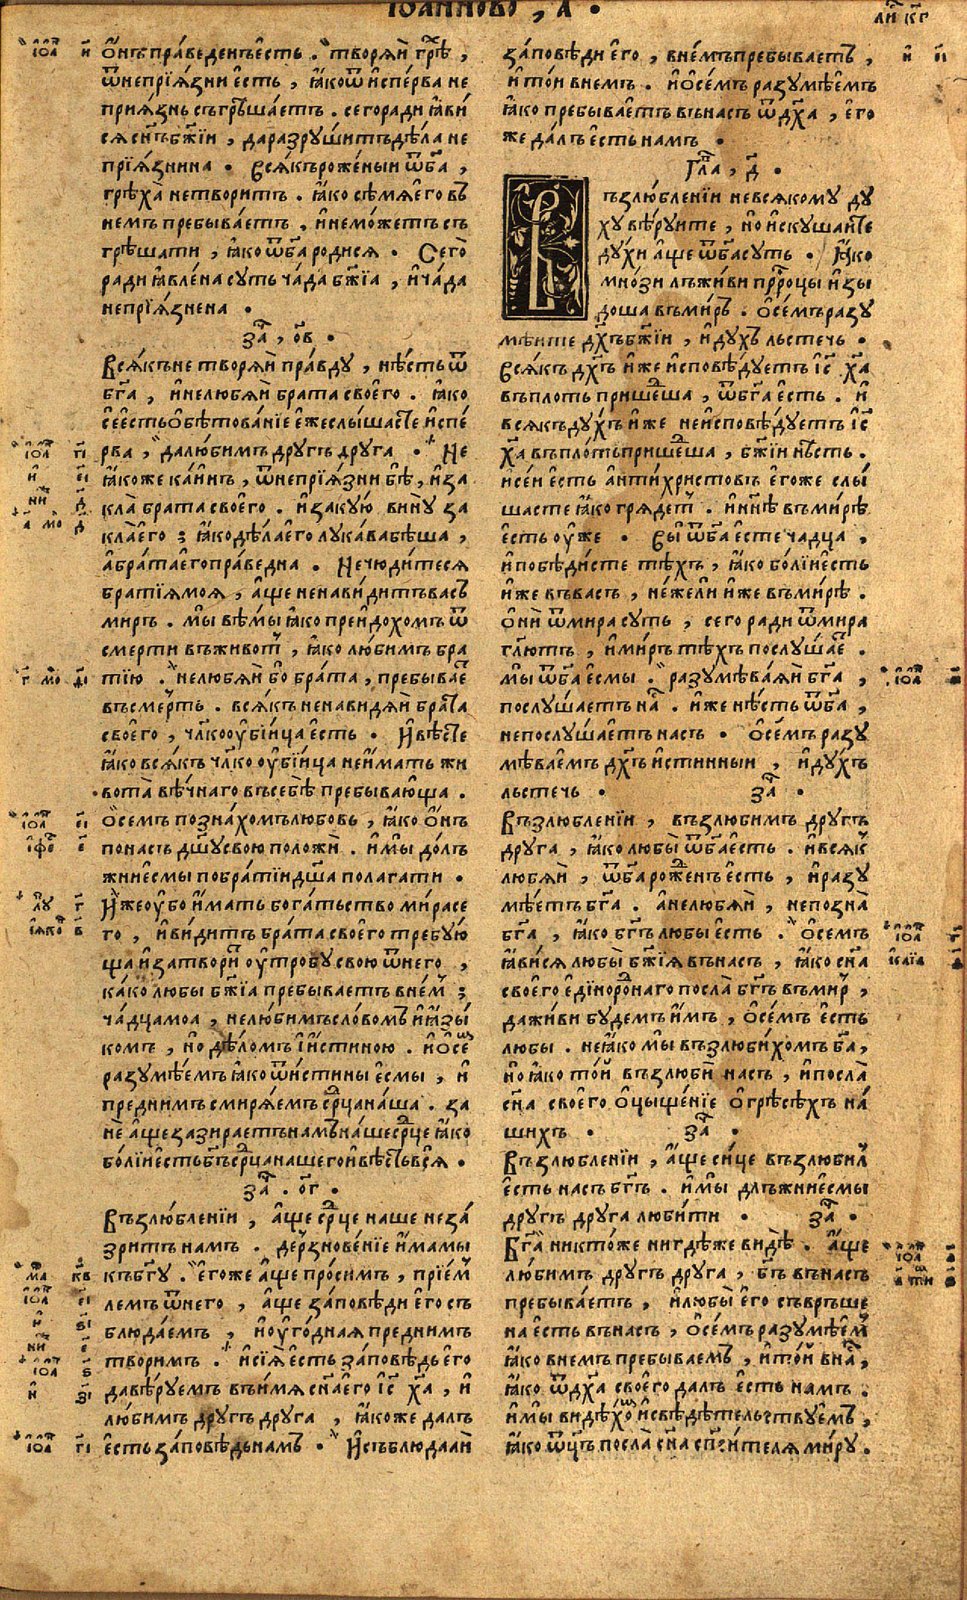 іѡанново , а҃ .
ли҃ кг҃
ѻ҆нъ пра́веденъ є҆сть . творѧ́й грѣ́хъ ,
ѿ непрїꙗ́зни є҆сть , ꙗ҆́ко ѿ и҆спе́рва не
прїѧзнь съгрѣша́етъ . сего ради ꙗ҆ви́
сѧ сн҃ъ бж҃їи , да разруши́тъ дѣ́ла не
прїꙗ́знина . Всѧ́къ роже́ныи ѿ бг҃а ,
грѣха̀ не твори́тъ . ꙗ҆́ко сѣ́мѧ є҆го въ
немъ пребыва́етъ . и҆ не мо́жетъ съ
грѣшати , ꙗ҆́ко ѿ бг҃а родисѧ . Сего̀
ради ꙗ҆вле́на суть ча́да бж҃їа , и҆ ча́да
непрїꙗ́знена .
за҃ , ѻв .
Всѧ́къ не творѧ́й пра́вду , нѣ́сть ѿ
бг҃а , и҆ не любѧ́й брата своего . ꙗ҆́ко
се є҆сть ѻ҆бѣтова́нїе є҆же слы́шасте и҆спе́
рва , да лю́бимъ другъ друга . Не
ꙗ҆́коже ка́инъ , ѿ непрїꙗ́зни бѣ̀ , и҆ за
кла̀ брата своего . и҆ за кую̀ вину̀ за
кла̀ его ; ꙗ҆́ко дѣ́ла его лука́ва бѣ́ша ,
а҆ бра́та его пра́ведна . Не чю́дитесѧ
братїѧ моѧ , а҆́ще ненави́дитъ васъ
миръ . мы вѣ́мы ꙗ҆́ко преидохомъ ѿ
смерти въ живот , ꙗ҆́ко лю́бимъ бра
тїю . не любѧ́й бо бра́та , пребывае
въ сме́рть . всѧ́къ ненави́дѧй брата
своего , чл҃коѹбі́йца є҆сть . И҆ вѣ́сте
ꙗ҆́ко всѧ́къ чл҃коѹбі́йца не и҆́мать жи
вота̀ вѣ́чнаго въ себѣ̀ пребывающа .
ѻ҆ семъ позна́хомъ любовь , ꙗ҆́ко ѻ҆нъ
по насъ дш҃у свою положи̂ . и҆ мы̀ до́лъ
жни є҆смы по бра́тїи дш҃а полагати .
И҆же ѹбо и҆́мать бога́тьство ми́ра се
го , и҆ ви́дитъ бра́та своего требую́
ща и҆ затвори́тъ ѹтробу свою ѿ него ,
ка́ко любы бж҃їа пребываетъ в нем ;
ча́дца моа , не лю́бимъ словомъ и҆ ꙗ҆зы́
комъ , но дѣ́ломъ і҆ и҆́стиною . и҆ ѻ҆ се
разумѣ́емъ ꙗ҆́ко ѿ и҆́стины є҆смы , и҆
пред нимъ смирѧ́емъ ср҃ца на́ша . за
нѐ а҆́ще зазираетъ намъ на́ше ср҃це ꙗ҆́ко
бо́лїи є҆сть бг҃ъ ср҃ца нашего и҆ вѣ́сть всѧ̀ .
за҃ . ѻг .
Възлю́бленїи , а҆́ще ср҃це наше не за́
зритъ намъ . дерзнове́нїе и҆́мамы
къ бг҃у . є҆гоже а҆́ще про́симъ , прїе́м
лемъ ѿ него , а҆́ще за́повѣди є҆го съ
блюда́емъ , и҆ ѹго́дная пред нимъ
творимъ . и҆ сїѧ̀ є҆сть за́повѣдь его
да вѣ́руемъ въ и҆́мѧ сн҃а его і҆с х҃а , и҆
лю́бимъ другъ друга , ꙗ҆́коже далъ
є҆сть за́повѣдь намъ . И҆ съблюдаѧ́й
за́повѣди є҆го , в не́мъ пребываетъ ,
и҆ то́и в немъ . и҆ ѻ҆ се́мъ разумѣ́емъ
ꙗ҆́ко пребыва́етъ въ насъ ѿ дх҃а , є҆го
же далъ є҆сть намъ .
гла , д҃ .
ъзлю́бленїи не всѧкому ду
ху вѣ́руите , но и҆скушайте
ду́хи а҆́ще ѿ бг҃а суть . Ꙗ҆ко
мно́зи лъжи́ви прр҃оцы и҆зы
доша въ миръ . ѻ҆ се́мъ разу
мѣ́ите дх҃ъ бж҃їи , и҆ духъ льстечь .
Всѧ́къ дх҃ъ и҆́же и҆сповѣ́дуетъ і҆с х҃а
въ плоть прише́дша , ѿ бг҃а є҆сть . и҆
всѧкъ ду́хъ и҆́же не и҆сповѣ́дуетъ і҆с
х҃а въ плоть прише́дша , бж҃їи нѣсть .
и҆ се́и є҆сть антихристовъ є҆гоже слы́
шасте ꙗ҆́ко грѧдетъ . и҆ нн҃ѣ въ ми́рѣ
є҆сть ѹ҆же . Вы̀ ѿ бг҃а є҆сте чадца ,
и҆ побѣди́сте тѣ́хъ , ꙗ҆́ко бо́лїи є҆сть
и҆́же въ васъ , не́жели и҆́же въ ми́рѣ .
ѻ҆ни ѿ мира суть , сего ради ѿ мира
гл҃ютъ , и҆ ми́ръ тѣ́хъ послу́шае .
мы̀ ѿ бг҃а є҆смы . разумѣва́ѧй бг҃а ,
послу́шаетъ на . и҆́же нѣ́сть ѿ бг҃а ,
непослу́шаетъ насъ . ѻ҆ се́мъ разу
мѣ́ваемъ дх҃ъ и҆́стинныи , и҆ ду́хъ
льстечь . за҃ .
Възлю́бленїи , възлю́бимъ другъ
друга , ꙗ҆́ко любы̀ ѿ бг҃а є҆сть . и҆ всѧк
любѧ́й , ѿ бг҃а роженъ є҆сть , и҆ разу
мѣ́етъ бг҃а . а҆ не любѧ́й , непозна̀
бг҃а , ꙗ҆́ко бг҃ъ любы є҆сть . ѻ҆ семъ
ꙗ҆ви́сѧ любы̀ бж҃їѧ въ насъ , ꙗ҆́ко сн҃а
своего є҆диноро́наго посла̀ бг҃ъ въ мир ,
да жи́ви бу́демъ и҆мъ , ѻ҆ се́мъ є҆сть
любы . не ꙗ҆́ко мы възлюби́хомъ бг҃а ,
но ꙗ҆́ко то́й възлюби̂ насъ , и҆ посла̀
сн҃а своего ѻ҆цыще́нїе ѻ҆ грѣсѣ́хъ на́
шихъ . за҃ .
Възлюбленїи , а҆́ще си́це възлюбил
є҆сть насъ бг҃ъ . и҆ мы̀ длъжни є҆смы
другъ друга люби́ти . за҃ .
Бг҃а никто́же нигдѣ́же ви́дѣ . а҆́ще
лю́бимъ другъ друга , бг҃ъ въ насъ
пребыва́етъ , и҆ любы̀ его съвръше
на є҆сть въ насъ , ѻ҆ се́мъ разумѣ́ем
ꙗ҆́ко в немъ пребываемъ , и҆ то́й в на ,
ꙗ҆́ко ѿ дх҃а своего далъ є҆сть намъ .
и҆ мы̀ ви́дѣхо и҆ свѣдѣ́тельствуемъ ,
ꙗ҆́ко ѿц҃ъ посла̀ сн҃а сп҃сителѧ ми́ру .